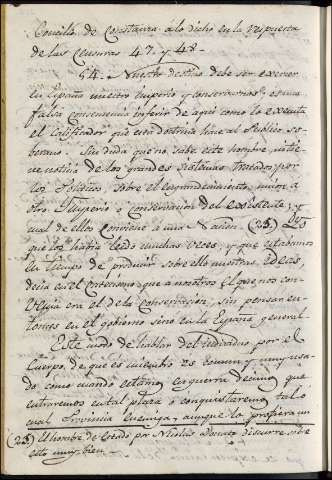 Concilio de Constanza á lo dicho en la respuesta
de las Censuras 47. y 48.
54. Nuestro destino debe ser exercer
en España nuestro imperio y conservarnos: es una
falsa consecuencia inferir de aqui como lo executa
el Calificador que esta doctrina hace al Publico so-
berano. Sin duda que no sabe este hombre ni tie-
ne noticia de los grandes sistemas tratados por
los Publicos sobre el engrandecimiento, union a
otro Imperio o conservacion del existente; y
cual de ellos conviene a una Nacion. (25) Yo
que los habia leido muchas veces, y que estabamos
en tiempo de producir sobre ello nuestras ideas,
decia en el que a nosotros el que nos con-
venia era el de la conservacion, sin pensar en-
tonces en el gobierno sino en la España general
Este modo de hablar del individuo por el
Cuerpo, de que es miembro es comun y muy usa-
do como cuando estamos en guerra decimos que
entraremos en tal plaza o conquistaremos tal o
cual Provincia enemiga, aunque lo profiera un
(25) El hombre de Estado por Nicolás Donato discurre sobre
esto muy bien